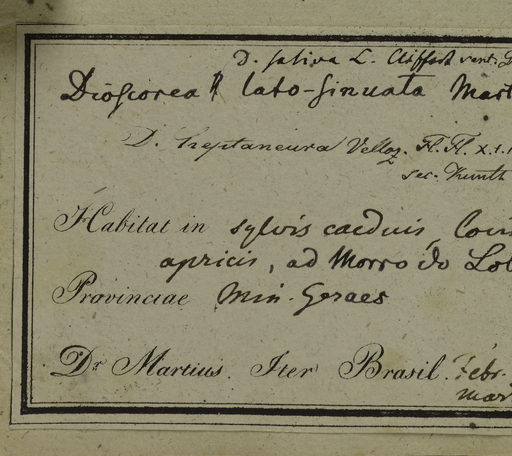 D. sativa L. Cliffort
Dioscorea lato-sinuata Mart
D. heptaneura Velloz. Fl. Fl. X. t. 1
sec. Kunth
Habitat in sylvis caeduis,
apricis, ad Morro do Lob
Provinciae Min. Geraes
Dr. Martius. Iter Brasil. Febr.
Mart